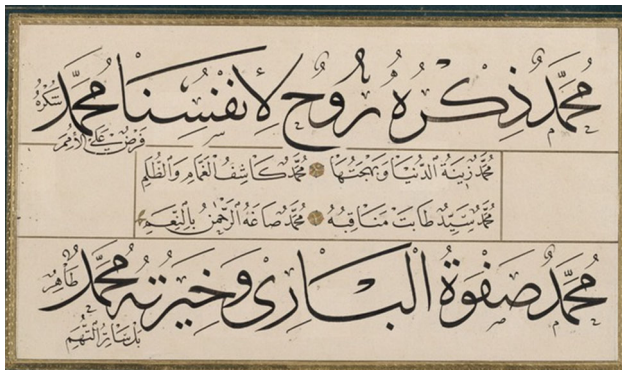 مُحَمَّدٌ ذِكْرُهُ رُوحٌ لِأَنْفُسِنَا مُحَمَّدٌ شُكْرُهُ
فَرْضٌ عَلَى الْأُمَمِ
مُحَمَّدٌ زِينَةُ الدُّنْيَا وَبَهْجَتُهَا مُحَمَّدٌ كَاشِفُ الْغَمَامِ وَالظُّلَمِ
مُحَمَّدٌ سَيِّدٌ طَابَتْ مَنَاقِبُهُ مُحَمَّدٌ صَاغَهُ الرَّحْمٰنُ بِالنِّعَمِ
مُحَمَّدٌ صَفْوَةُ الْبَارِى وَخِيرَتُهُ مُحَمَّدٌ طَاهِرٌ
سَائِرِ التُّهَمِ